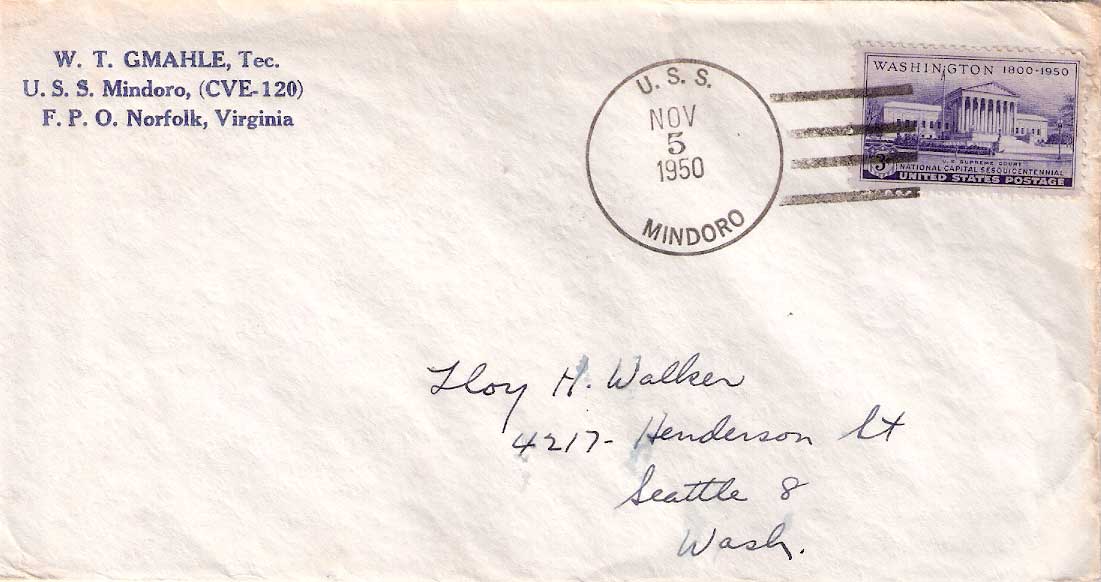 W. T. GMAHLE, Tec.
U. S. S. Mindoro, (CVE-120)
F. P. O. Norfolk, Virginia
U. S. S.
NOV
5
1950
MINDORO
WASHINGTON 1800-1950
3¢
U.S. SUPREME COURT
NATIONAL CAPITAL SESQUICENTENNIAL
UNITED STATES POSTAGE
Lloy H. Walker
4217- Henderson St
Seattle 8
Wash.